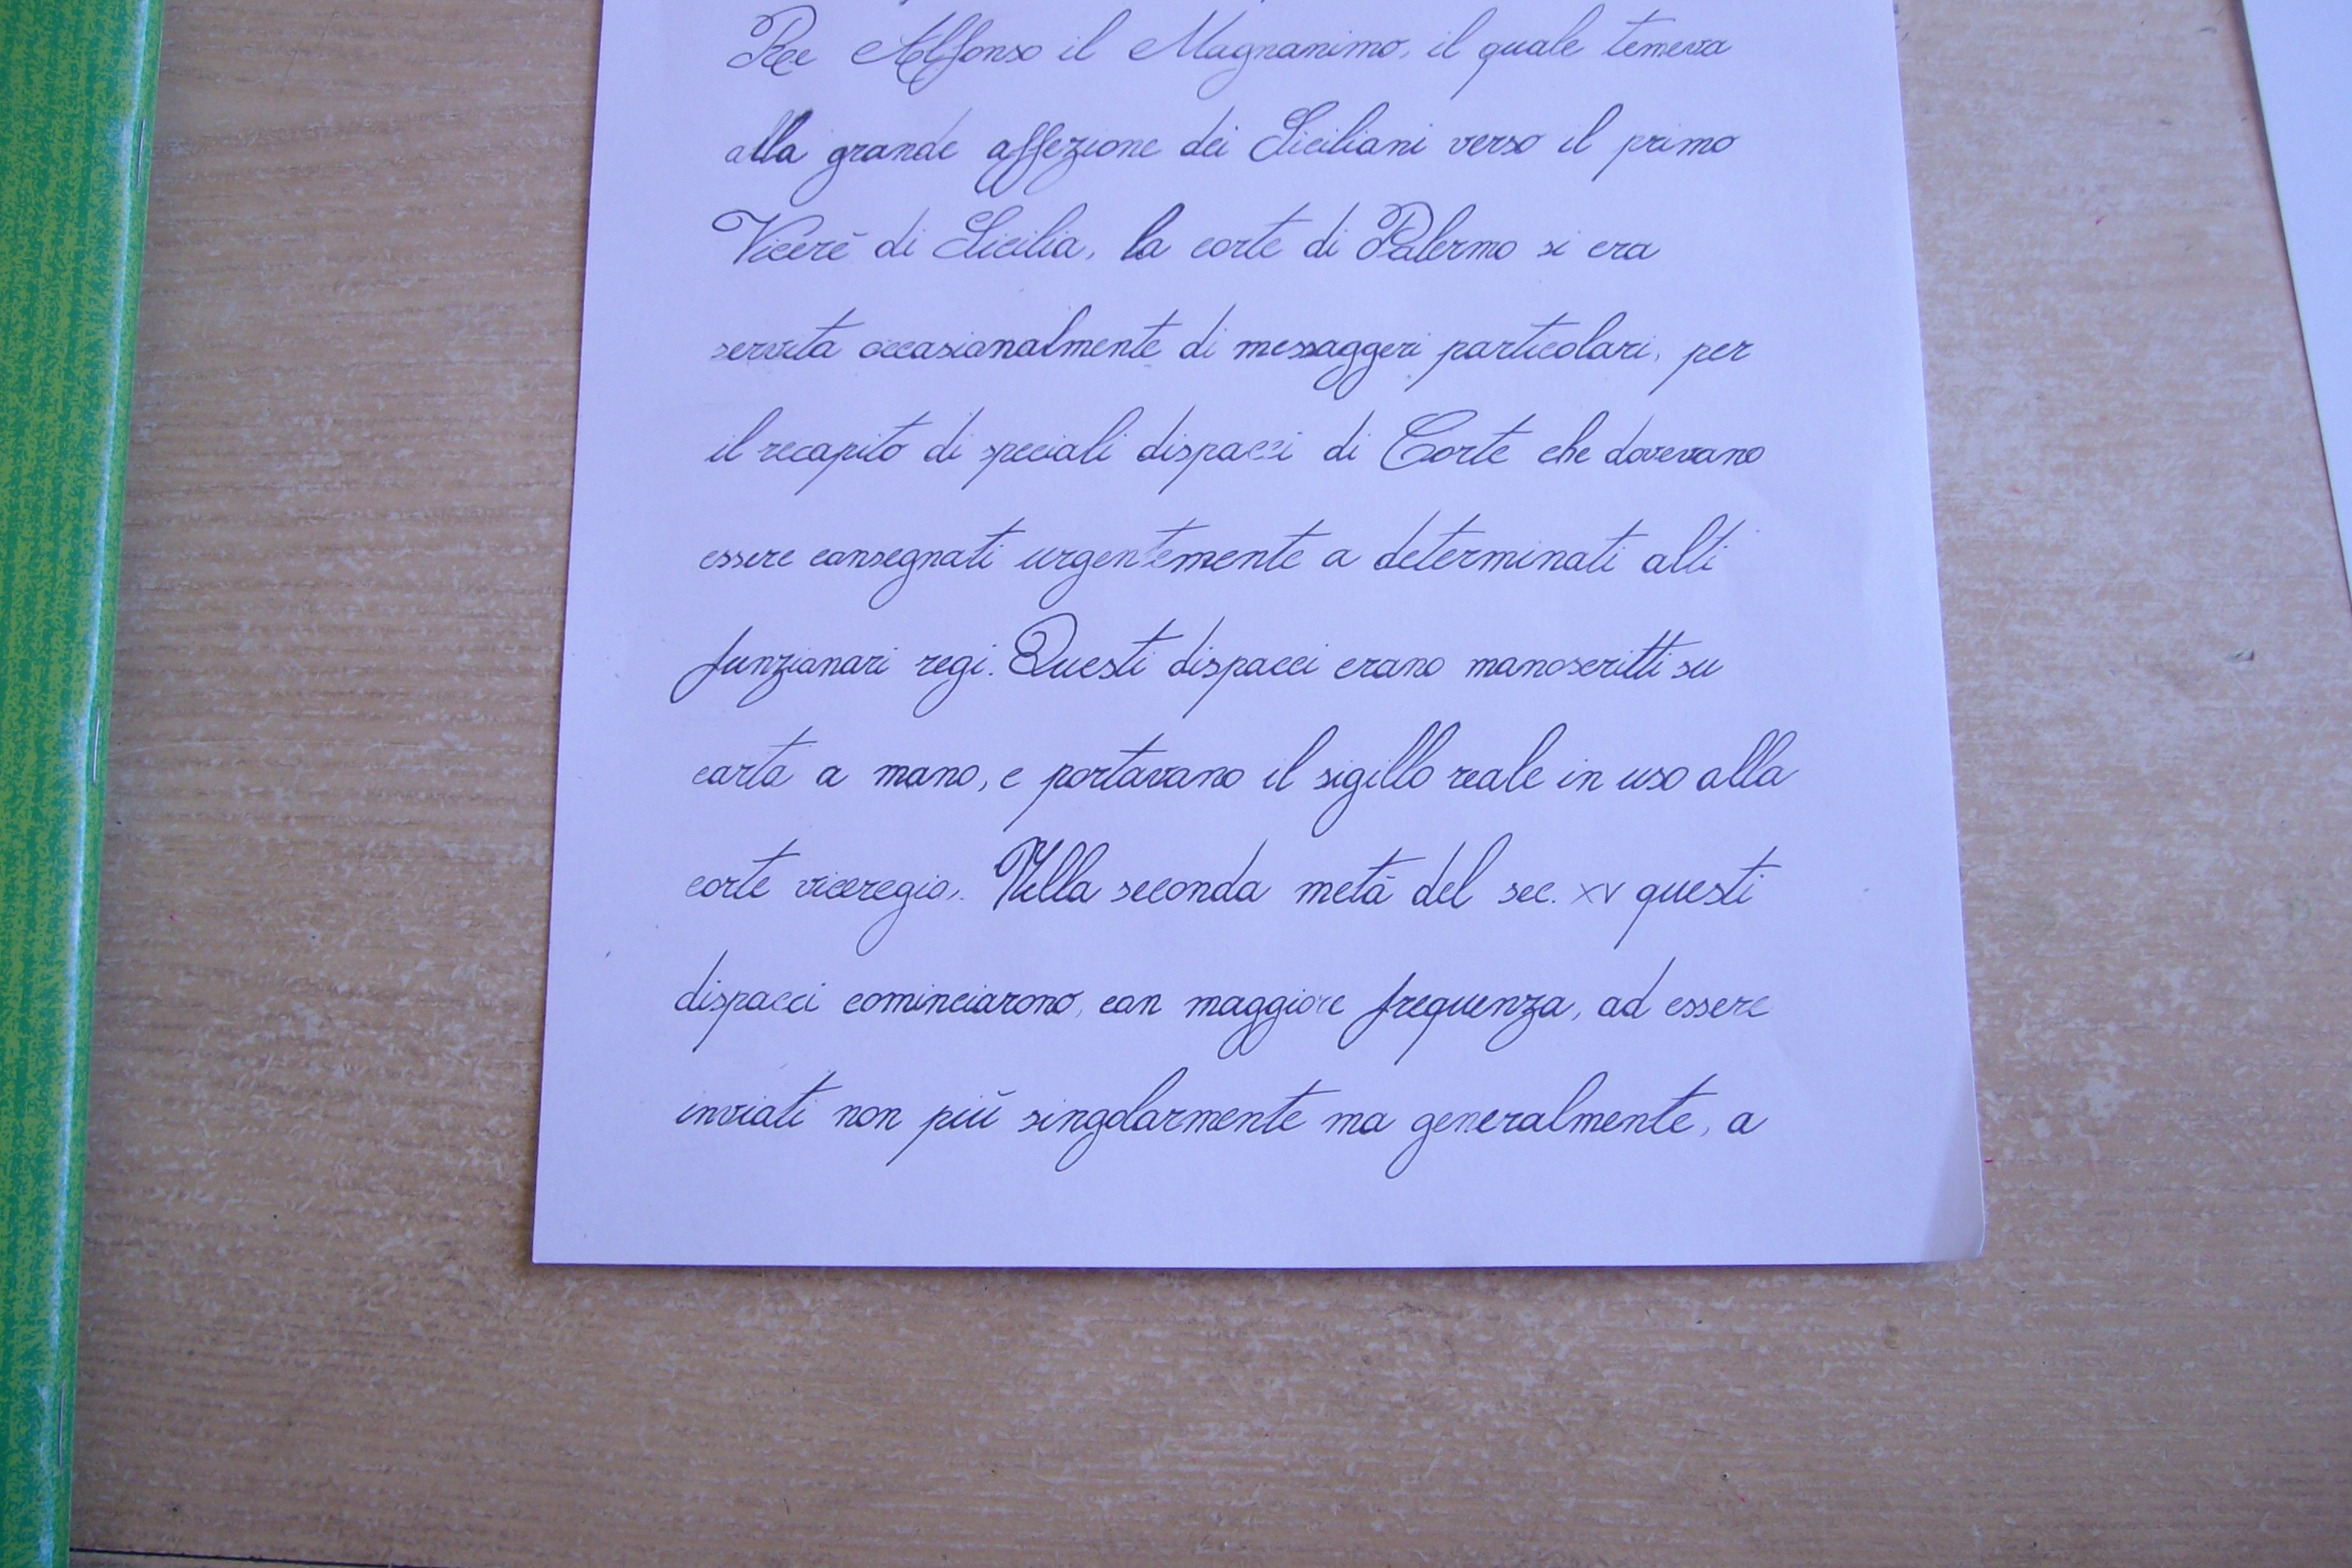 Re Alfonso il Magnanimo, il quale temeva
alla grande affezione dei Siciliani verso il primo
Viceré di Sicilia, la corte di Palermo si era
servita occasionalmente di messaggeri particolari, per
il recapito di speciali dispacci di Corte che dovevano
essere consegnati urgentemente a determinati alti
funzionari regi. Questi dispacci erano manoscritti su
carta a mano, e portavano il sigillo reale in uso alla
corte viceregia. Nella seconda metà del sec. XV questi
dispacci cominciarono, con maggiore frequenza, ad essere
inviati non più singolarmente ma generalmente, a